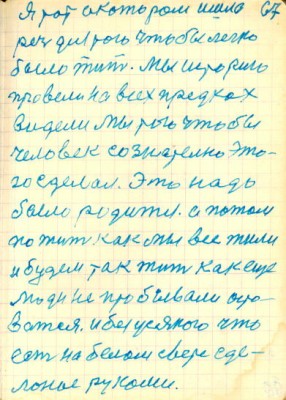 Я тот о котором шла 67
речь для того чтобы легко
было жить. Мы историю
провели на всех предках
видели мы того чтобы
человек сознателно это-
го сделал. Это надо
было родится. а потом
пожить как мы все жили
и будем так жить как еще
люди не пробывали оста-
ватся. и без усякого что
есть на белом свете сде-
ланое руками.